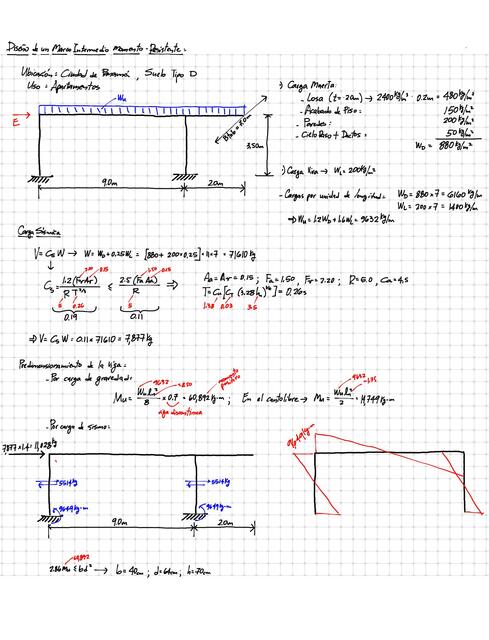 Diseño de un Marco Intermedio Momento-Resistente:
Ubicación: Ciudad de Panamá, Suelo Tipo D
Uso: Apartamentos
Wu
E
3.50m
9.0m
2.0m
) Carga Muerta:
- Losa (t=20cm) → 2400 kg/m³ · 0.2m = 480 kg/m²
- Acabado de Piso: 150 kg/m²
- Paredes: 200 kg/m²
- Cielo Raso + Ductos = 50 kg/m²
WD = 880 kg/m²
) Carga Viva → WL = 200 kg/m²
- Cargas por unidad de longitud: WD = 880 × 7 = 6160 kg/m
WL = 200 × 7 = 1400 kg/m
⇒ Wu = 1.2WD + 1.6WL = 9632 kg/m
Carga Sísmica
V = Cs W → W = WD + 0.25WL = [880 + 200·0.25]·11·7 = 71610 kg
2.20 0.15
1.50 0.15
Cs = 1.2(FvAv) / R T^2/3 ≤ 2.5(FaAa) / R ⇒
Aa = Av = 0.15; Fa = 1.50, Fv = 2.20; R = 5.0, Cd = 4.5
5 0.26
5
T = Cu[CT (3.28hn)^3/4] = 0.26s
0.19
0.11
0.03 3.5
⇒ V = Cs W = 0.11 × 71610 = 7,877 kg
Predimensionamiento de la viga:
- Por carga de gravedad:
9632
momento positivo
Mu = Wu ln² / 8 × 0.7 = 60,892 kg·m; En el cantiliver → Mu = Wu ln² / 2 = kg·m
viga discontinua
9632
- Por carga de sismo:
7877×1.4 = 11,028 kg
5514 kg
5514 kg
9649 kg·m
9649 kg·m
9.0m
2.0m
9649 kg·m
60,892
2.86 Mu ≤ bd² → b = 40cm; d = 64cm; h = 70cm